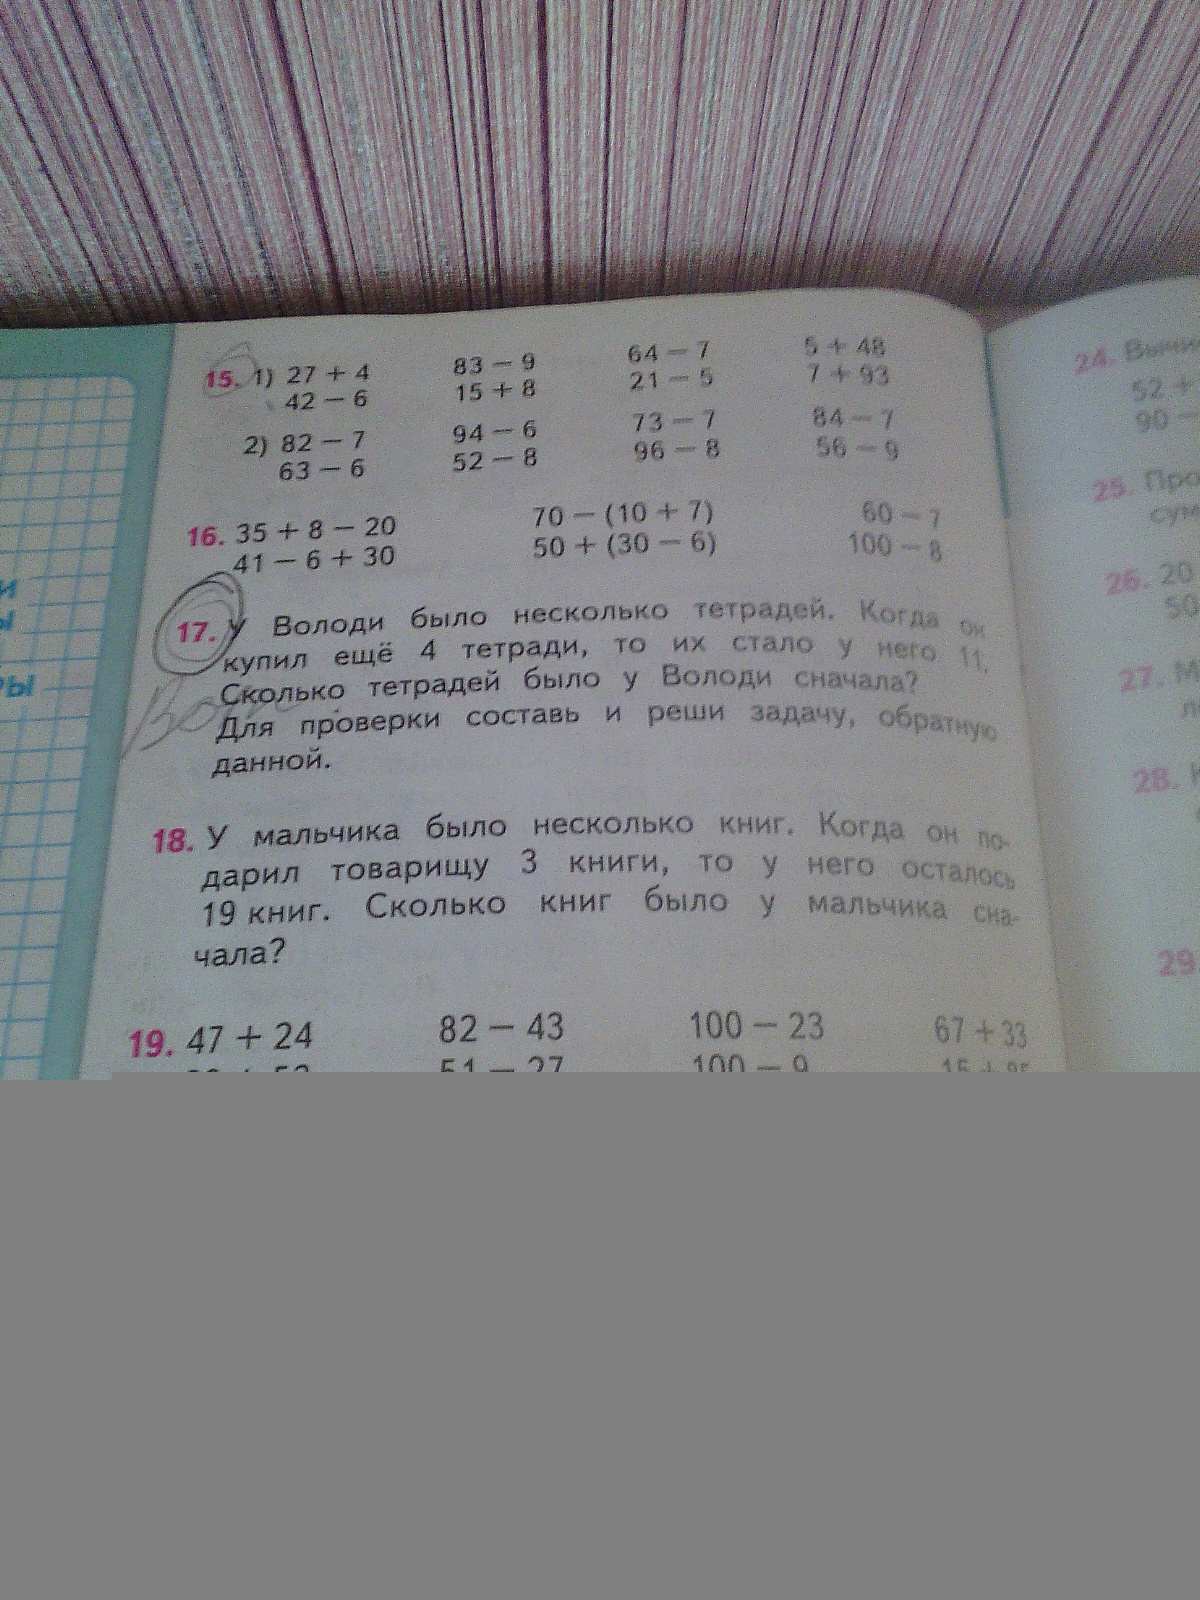 15. 1) 27 + 4 83 − 9 64 − 7 5 + 48
42 − 6 15 + 8 21 − 5 7 + 93
2) 82 − 7 94 − 6 73 − 7 84 − 7
63 − 6 52 − 8 96 − 8 56 − 9
16. 35 + 8 − 20 70 − (10 + 7) 60 − 7
41 − 6 + 30 50 + (30 − 6) 100 − 8
17. У Володи было несколько тетрадей. Когда он
купил ещё 4 тетради, то их стало у него 11.
Сколько тетрадей было у Володи сначала?
Для проверки составь и реши задачу, обратную
данной.
18. У мальчика было несколько книг. Когда он по-
дарил товарищу 3 книги, то у него осталось
19 книг. Сколько книг было у мальчика сна-
чала?
19. 47 + 24 82 − 43 100 − 23 67 + 33
51 − 27 100 − 9
24.
52 +
90 −
25.
26. 20
50
27.
28.
29